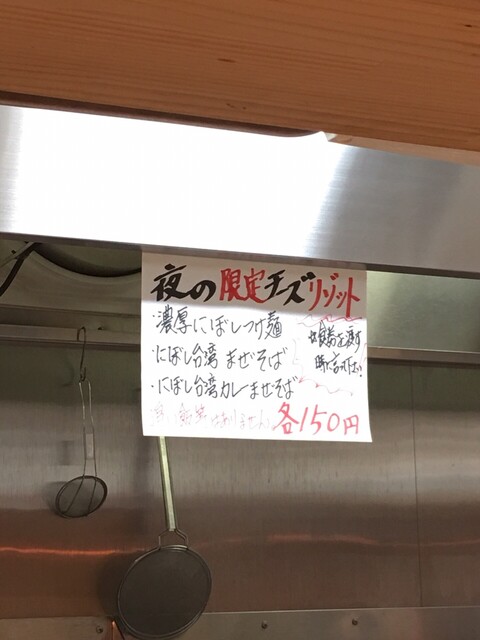 夜の限定チーズリゾット
・濃厚にぼしつけ麺
・にぼし台湾まぜそば
・にぼし台湾カレーまぜそば
はありません
各150円
食券を渡す
時に